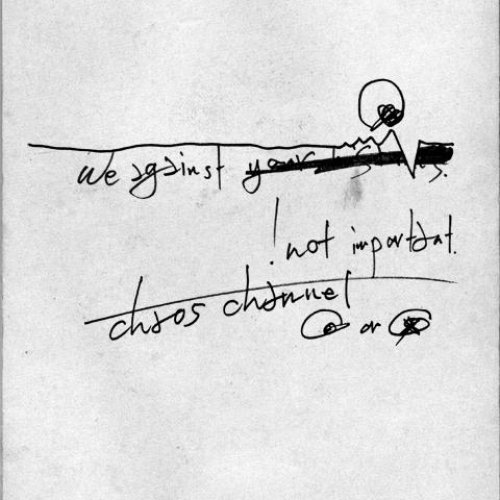 we against your
! not important.
chaos channel
or